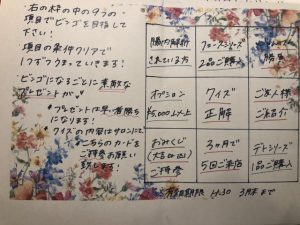 右の枠の中の9つの
項目でビンゴを目指して
下さい!
項目の条件クリアで
1つずつうまっていきます!
ビンゴになるごとに素敵な
プレゼントが♥
プレゼントは早い者勝ち
になります!
クイズの内容はサロンにて
こちらのカードを
ご持参お願い
致します!
腸内解析
されている方
フローズシリーズ
2品ご購入
勝負
オプション
¥5,000以上
クイズ
正解
ご友人様
ご紹介
おみくじ
(大吉のみ)
ご持参
3ヶ月で
5回ご来店
デトシリーズ
1品ご購入
有効期限
3月末まで